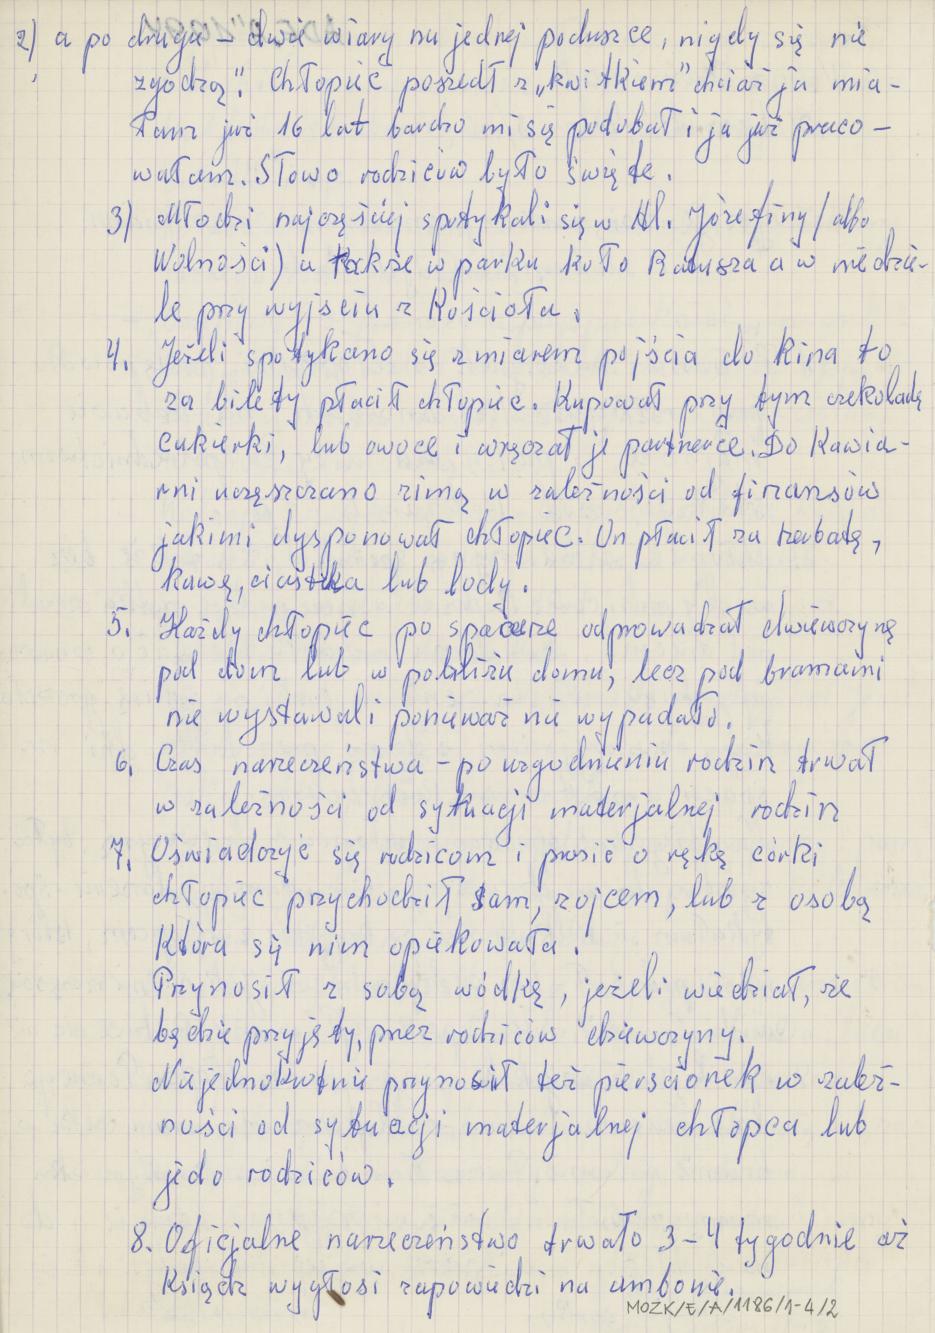 2) a po drugie – dwie wiary na jednej poduszce, nigdy się nie
zgodzą". Chłopiec poszedł z „kwitkiem" chciaż ja mia-
łam już 16 lat bardzo mi się podobał i ja już praco-
wałam. Słowo rodziców było święte.
3) Młodzi najczęściej spotykali się w Al. Józefiny /albo
Wolności) a także w parku koło Ratusza a w niedzie-
le przy wyjsciu z Kościoła.
4. Jeżeli spotykano się z miarem pojścia do kina to
za bilety płacił chłopiec. Kupował przy tym czekoladę
cukierki, lub owoce i wręczał je partnerce. Do Kawia-
rni uczęszczano zimą w zależności od finansów
jakimi dysponował chłopiec. On płacił za herbatę,
kawę, ciastka lub lody.
5. Każdy chłopiec po spacerze odprowadzał dziewczynę
pod dom lub w pobliżu domu, lecz pod bramami
nie wystawali ponieważ nie wypadało.
6. Czas narzeczeństwa – po uzgodnieniu rodzin trwał
w zależności od sytuacji materjalnej rodzin
7. Oświadczyć się rodzicom i prosić o rękę córki
chłopiec przychodził sam, z ojcem, lub z osobą
Która się nim opiekowała.
Przynosił z sobą wódkę, jeżeli wiedział, że
będzie przyjęty, przez rodziców dziewczyny.
Niejednokrotnie przynosił też pierscionek w zależ-
ności od sytuacji materjalnej chłopca lub
jedo rodziców.
8. Oficjalne narzeczeństwo trwało 3–4 tygodnie aż
Ksiądz wygłosi zapowiedzi na ambonie.
MOZK/E/A/1186/1-4/2